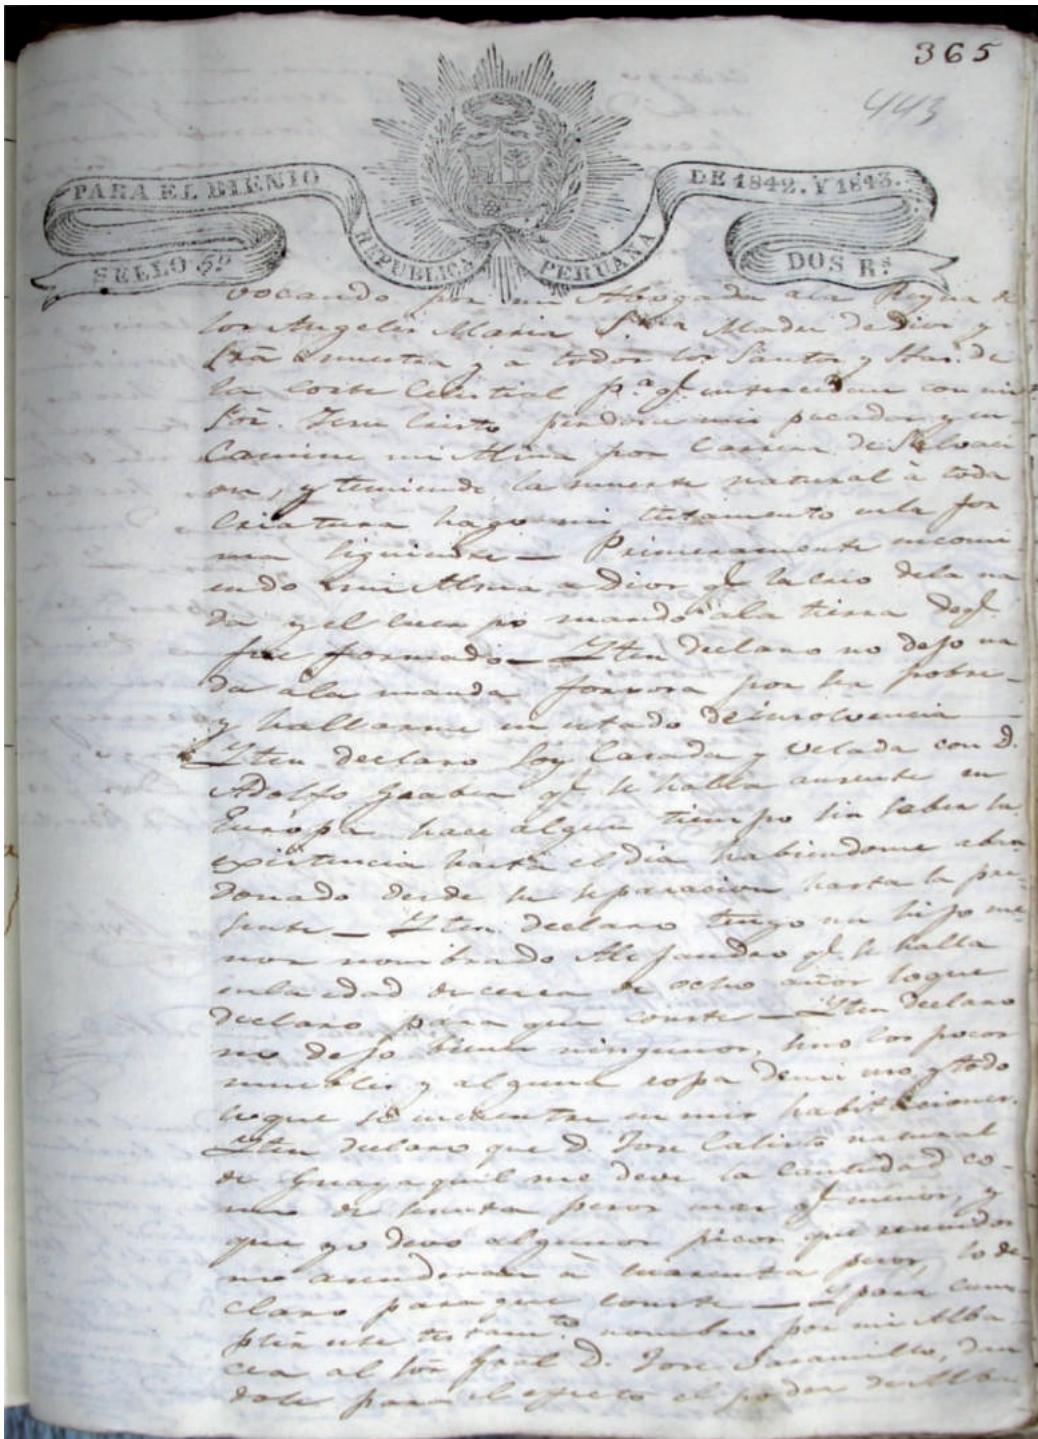 365
443
PARA EL BIENIO
DE 1842. Y 1843.
REPUBLICA PERUANA
SELLO 5º
DOS Rs.
vocando por mi Abogada ala Reyna de
los Angeles Maria Sma Madre de Dios y
Srã nuestra y a todos los Santos y Stas. de
la corte Celestial pª. q. intercedan con mi
Sor. Jesu Cristo perdone mis pecados y en
Camine mi Alma por Carrera de Salvaci
on, y temiendo la muerte natural à toda
Criatura hago mi testamento en la for
ma siguiente — Primeramente encomi
endo mi Alma a Dios q. la crio dela na
da y el cuerpo mando ala tierra deq.
fue formado — Yten declaro no dejo na
da àla manda forsosa por ser pobre
y hallarme en estado de insolvencia —
Yten declaro soy Casada y Velada con D.
Adolfo Graber q. se halla ausente en
Europa hace algun tiempo sin saber su
existencia hasta el dia habiendome aban
donado desde su separacion hasta la pre
sente — Yten declaro tengo un hijo me
nor nombrado Alejandro q. se halla
en la edad de cerca de ocho años loque
declaro para que conste — Yten declaro
no dejo bienes ningunos, sino los pocos
muebles y alguna ropa demi uso y todo
loque se encuentra en mis habitaciones.
Yten declaro que D. Jose Calisto natural
de Guayaquil me deve la cantidad co-
mo de senta pesos mas q. menos, y
que yo devo algunos picos que reunidos
no asenderan à cuarenta pesos, lo de-
claro para que conste — Y para cum-
plir este testamto. nombro por mi Alba
cea al Sor Gral D. Jose Jaramillo, dan
dole para el efecto el poder de Alba